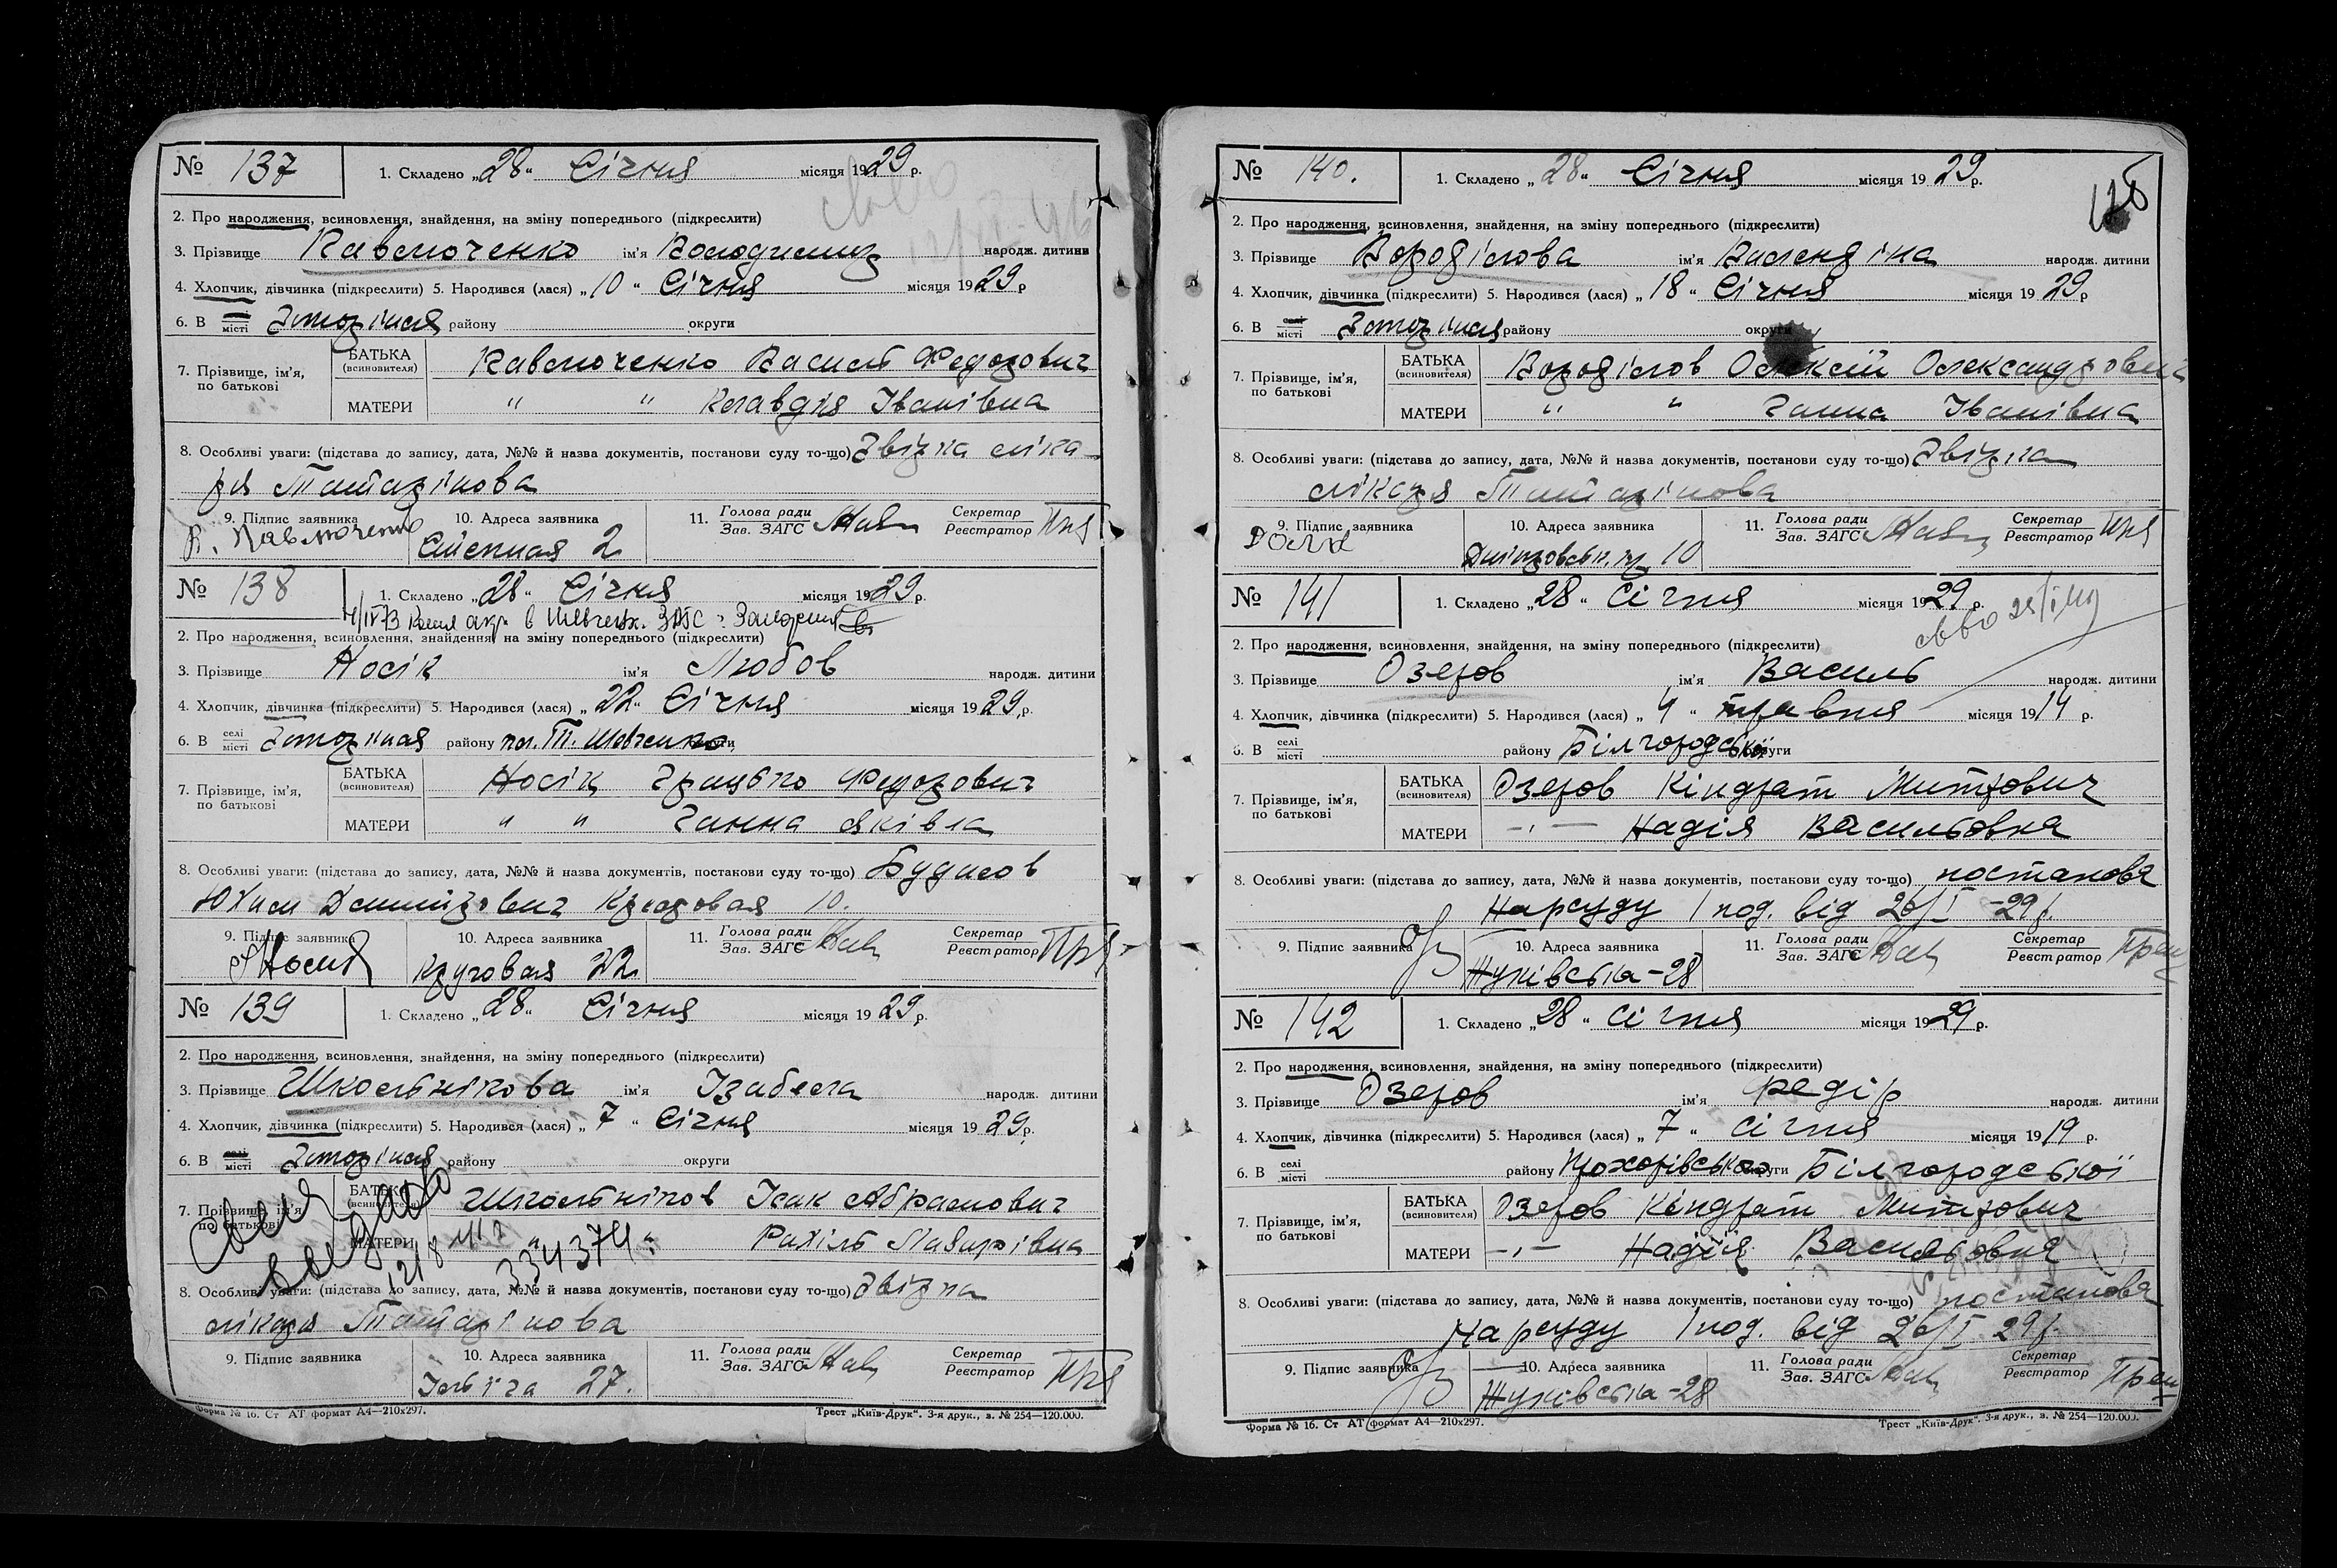 № 137
1. Складено „28“ Січня місяця 1929 р.
2. Про народження, всиновлення, знайдення, на зміну попереднього (підкреслити)
3. Прізвище Павлюченко ім'я Володимир народж. дитини
4. Хлопчик, дівчинка (підкреслити) 5. Народився (лася) „10“ Січня місяця 1929 р
6. В місті Запоріжжя району округи
7. Прізвище, ім'я, по батькові
БАТЬКА (всиновителя) Павлюченко Василь Федорович
МАТЕРИ " " Клавдія Іванівна
8. Особливі уваги: (підстава до запису, дата, №№ й назва документів, постанови суду то-що) Звірка ліка-
ря Татарінова
9. Підпис заявника В. Павлюченко
10. Адреса заявника Степная 2
11. Голова ради Зав. ЗАГС Секретар Реєстратор
№ 138
1. Складено „28“ Січня місяця 1929 р.
2. Про народження, всиновлення, знайдення, на зміну попереднього (підкреслити)
3. Прізвище Носік ім'я Любов народж. дитини
4. Хлопчик, дівчинка (підкреслити) 5. Народився (лася) „22“ Січня місяця 1929 р.
6. В селі місті Запоріжжя району пл. Т. Шевченко округи
7. Прізвище, ім'я, по батькові
БАТЬКА (всиновителя) Носік Грицько Федорович
МАТЕРИ " " Ганна Яківла
8. Особливі уваги: (підстава до запису, дата, №№ й назва документів, постанови суду то-що)
Юхим Дмитрович Круговая 10.
9. Підпис заявника
10. Адреса заявника Круговая 22
11. Голова ради Зав. ЗАГС Секретар Реєстратор
№ 139
1. Складено „28“ Січня місяця 1929 р.
2. Про народження, всиновлення, знайдення, на зміну попереднього (підкреслити)
3. Прізвище Школьнікова ім'я Ізабела народж. дитини
4. Хлопчик, дівчинка (підкреслити) 5. Народився (лася) „7“ Січня місяця 1929 р.
6. В селі місті Запоріжжя району округи
7. Прізвище, ім'я, по батькові
БАТЬКА (всиновителя) Школьніков Ісак Абрамович
МАТЕРИ " " Рахіль Лазарівна
334374
8. Особливі уваги: (підстава до запису, дата, №№ й назва документів, постанови суду то-що) Звірка
лікаря Татарінова
9. Підпис заявника
10. Адреса заявника Ілліча 27.
11. Голова ради Зав. ЗАГС Секретар Реєстратор
Форма № 16. Ст АТ формат А4—210х297. Трест „Київ-Друк“. 3-я друк., з. № 254—120.000.
№ 140.
1. Складено „28“ Січня місяця 1929 р.
2. Про народження, всиновлення, знайдення, на зміну попереднього (підкреслити)
3. Прізвище Воробйова ім'я Валентіна народж. дитини
4. Хлопчик, дівчинка (підкреслити) 5. Народився (лася) „18“ Січня місяця 1929 р
6. В селі місті Запоріжжя району округи
7. Прізвище, ім'я, по батькові
БАТЬКА (всиновителя) Олексій Олександрович
МАТЕРИ " " Ганна Іванівна
8. Особливі уваги: (підстава до запису, дата, №№ й назва документів, постанови суду то-що) Звірка
лікаря Татарінова
9. Підпис заявника
10. Адреса заявника 10
11. Голова ради Зав. ЗАГС Секретар Реєстратор
№ 141
1. Складено „28“ Січня місяця 1929 р.
2. Про народження, всиновлення, знайдення, на зміну попереднього (підкреслити)
3. Прізвище Озеров ім'я Василь народж. дитини
4. Хлопчик, дівчинка (підкреслити) 5. Народився (лася) „4“ травня місяця 1914 р.
6. В селі місті району Білгородської округи
7. Прізвище, ім'я, по батькові
БАТЬКА (всиновителя) Озеров Кіндрат Митрович
МАТЕРИ —"— Надія Васильовна
8. Особливі уваги: (підстава до запису, дата, №№ й назва документів, постанови суду то-що) постанова
Нарсуду 1 под. від 26/I –29 р
9. Підпис заявника
10. Адреса заявника Жуківська–28
11. Голова ради Зав. ЗАГС Секретар Реєстратор
№ 142
1. Складено „28“ Січня місяця 1929 р.
2. Про народження, всиновлення, знайдення, на зміну попереднього (підкреслити)
3. Прізвище Озеров ім'я Федір народж. дитини
4. Хлопчик, дівчинка (підкреслити) 5. Народився (лася) „7“ Січня місяця 1919 р.
6. В селі місті району Прохорівського округи Білгородської
7. Прізвище, ім'я, по батькові
БАТЬКА (всиновителя) Озеров Кіндрат Митрович
МАТЕРИ —"— Надія Васильовна
8. Особливі уваги: (підстава до запису, дата, №№ й назва документів, постанови суду то-що) постанова
Нарсуду 1 под. від 26/I 29 р.
9. Підпис заявника
10. Адреса заявника Жуківська–28
11. Голова ради Зав. ЗАГС Секретар Реєстратор
Форма № 16. Ст АТ формат А4—210х297. Трест „Київ-Друк“. 3-я друк., з. № 254—120.000.